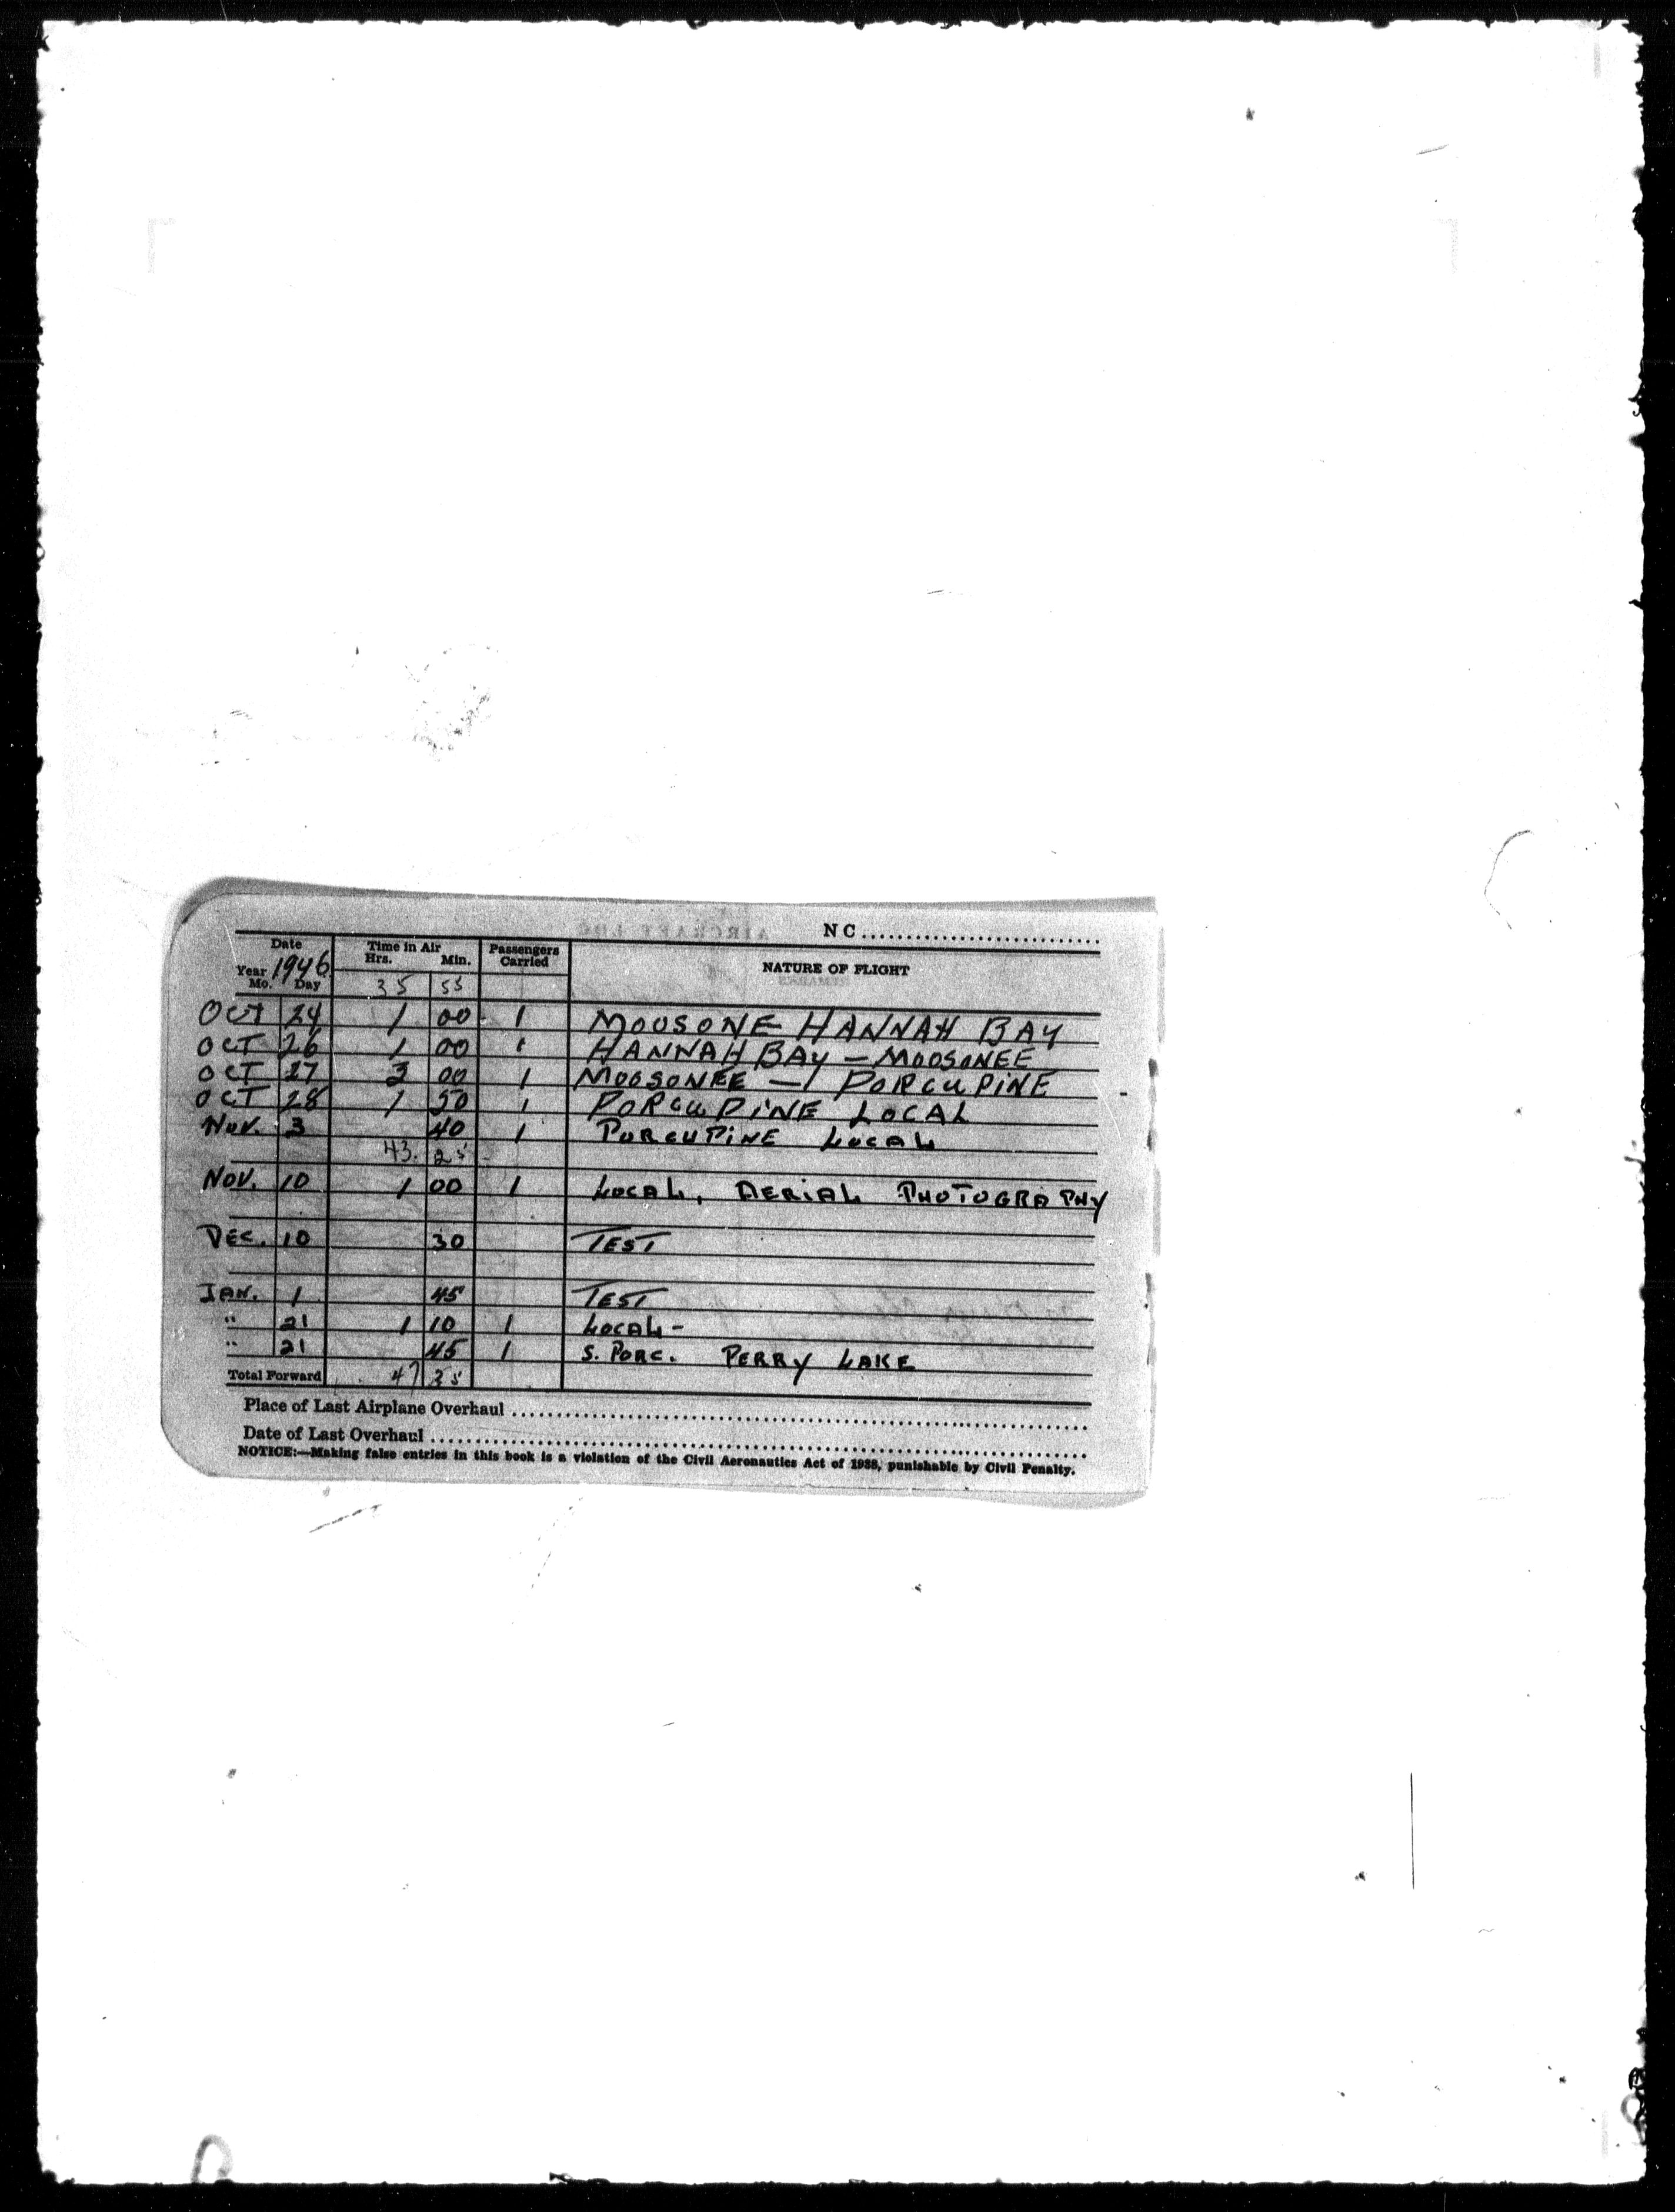 NC
Date Time in Air Passengers Carried NATURE OF FLIGHT
Year 1946 Hrs. Min.
Mo. Day 35 55
OCT 24 1 00 1 MOOSONE HANNAH BAY
OCT 26 1 00 1 HANNAH BAY – MOOSONEE
OCT 27 3 00 1 MOOSONEE – PORCUPINE
OCT 28 1 50 1 PORCUPINE LOCAL
NOV. 3 40 1 PORCUPINE LOCAL
43. 25
NOV. 10 1 00 1 LOCAL, AERIAL PHOTOGRAPHY
DEC. 10 30 TEST
JAN. 1 45 TEST
" 21 1 10 1 LOCAL –
" 21 45 1 S. PORC. PERRY LAKE
Total Forward 47 35
Place of Last Airplane Overhaul
Date of Last Overhaul
NOTICE:—Making false entries in this book is a violation of the Civil Aeronautics Act of 1938, punishable by Civil Penalty.